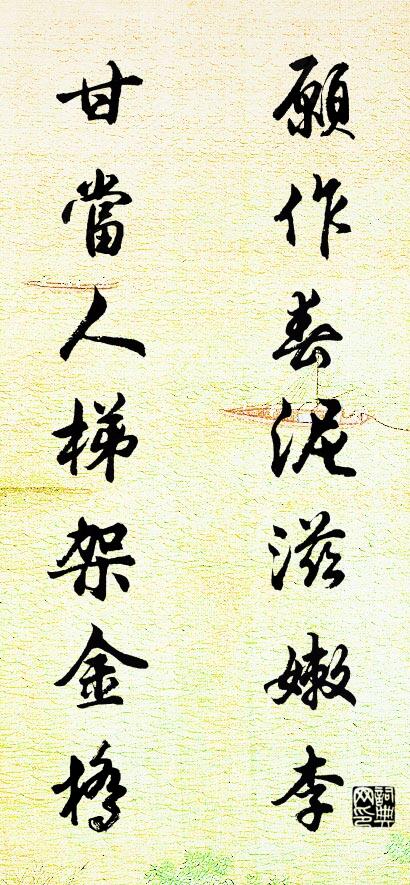 願作春泥滋嫩李
甘當人梯架金橋
詞典网